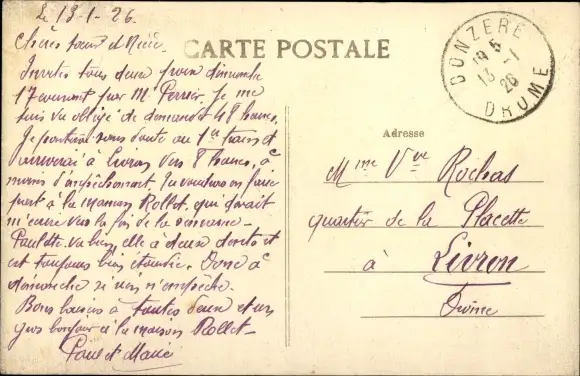 le 13-1-26.
Chères sœur et Nièce
CARTE POSTALE
Invités tous deux pour dimanche
17 courant par M. Perrier. Je me
suis vu obligé de demander 48 heures.
Je partirai sans doute au 1er train et
arriverai à Livron vers 8 heures, à
moins d'empêchement. Tu voudras en faire
part à la maman Rollet. qui devait
m'écrire vers la fin de la semaine -
Paulette va bien, elle a deux dents et
est toujours bien étourdie. Donc à
dimanche si rien n'empêche.
Bons baisers à toutes deux et un
gros bonjour à la maison Rollet -
Paul et Marie
DONZERE
19 5
13 - 1
26
DROME
Adresse
Mme Vve Rochas
quartier de la Placette
à Livron
Drôme